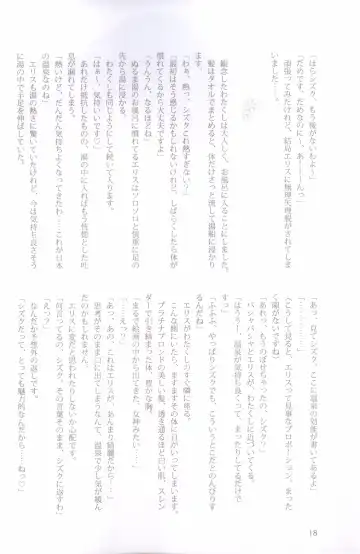 「ほらシズク、もう後がないわよー」
「だめです、だめなのに、あ――んっ」
　頑張ってみたけれど、結局エリスに無理矢理脱がされてしまいました……。
　観念したわたくしは大人しく、お風呂に入ることにしました。
　髪はタオルでまとめると、体だけさっと流して湯船に浸かります。
「わぁ、熱っ、シズクこれ熱すぎない？」
「最初はそう感じるかもしれないけれど、しばらくしたら体が慣れてくるから大丈夫ですよ」
「うんうん、なるほど」
　ぬるま湯のお風呂に慣れているエリスはソロソロと慎重に足の先から湯に浸かる。
　わたくしも同じようにして続いて入ります。
「はぁー、気持ちいいです♡」
　あれだけ抵抗したものの、湯の中に入ればもう恍惚とした吐息が漏れてしまいました。
「熱いけど、だんだん気持ちよくなってきたわ……これが日本の温泉なのね」
　エリスも湯の熱さに驚いていたけれど、今は気持ち良さそうに湯の中で手足を伸ばしていた。
「あっ、見てシズク、ここに温泉の効能が書いてあるよ」
「…………」
（こうして見ると、エリスって見事なプロポーション、まったく隙がないですね）
「あれっ、もうのぼせちゃったの、シズク？」
　バシャバシャとエリスが、わたくしに近づいてくる。
「はうぅー、温泉が気持ち良くって、まったりしてるだけですっ」
「ふふふ、やっぱりシズクでも、こういうとこだとのんびりするんだね」
　エリスがわたくしのすぐ横に座る。
　こんな傍にいたら、ますますその体に目がいってしまいます。
　プラチナブロンドの美しい髪、透き通るほど白い肌、スレンダーで引き締まった体、豊かな胸。
「まるで絵画の中から出てきた、女神みたい……」
「……えっ？」
「あ、あの、これはエリスが、あんまり綺麗だから……」
　思考がそのまま口に出てしまうなんて、温泉で少し気が緩んだのかもしれません。
　エリスに変だと思われたりしないか心配です。
「何言ってるの、シズク、その言葉そのまま、シズクに返すわ」
「えっ？」
　なんだか予想外の返しです。
「シズクだって、とっても魅力的なんだから……ねっ♡」
18